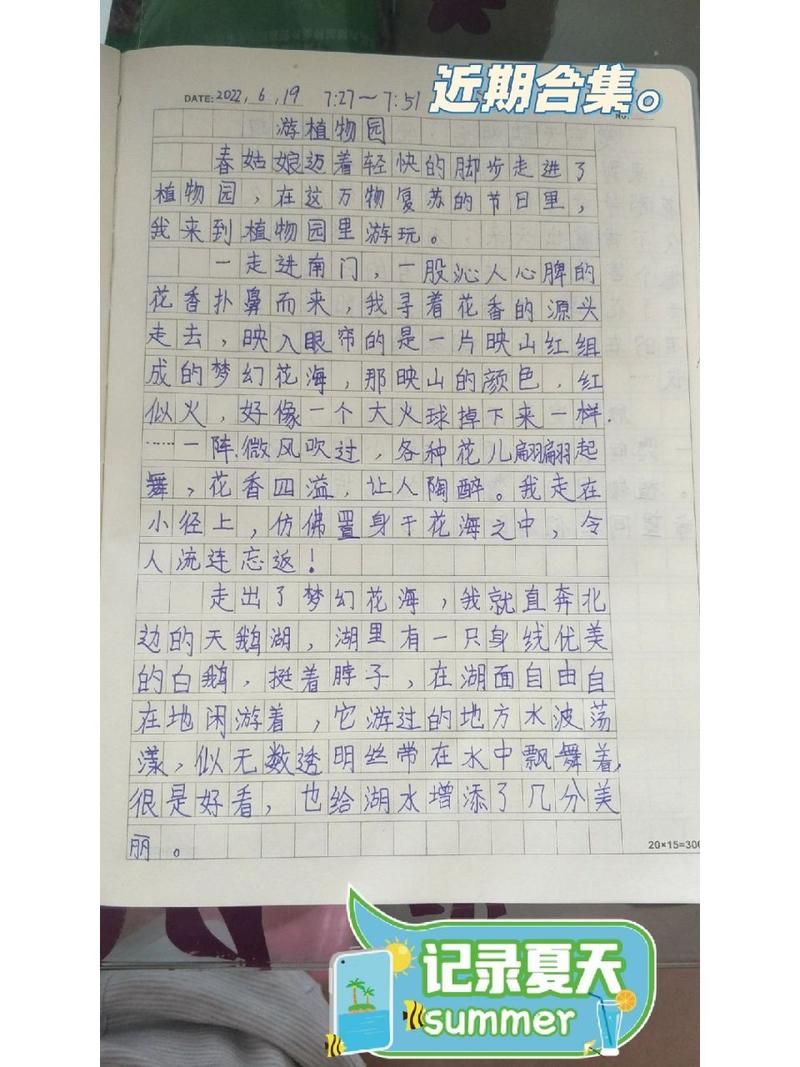 近期合集。
DATE: 2022.6.19 7:27～7:51
NO.
游植物园
春姑娘迈着轻快的脚步走进了
植物园，在这万物复苏的节日里，
我来到植物园里游玩。
一走进南门，一股沁人心脾的
花香扑鼻而来，我寻着花香的源头
走去，映入眼帘的是一片映山红组
成的梦幻花海，那映山的颜色，红
似火，好像一个大火球掉下来一样.
……一阵微风吹过，各种花儿翩翩起
舞，花香四溢，让人陶醉。我走在
小径上，仿佛置身于花海之中，令
人流连忘返！
走出了梦幻花海，我就直奔北
边的天鹅湖，湖里有一只身线优美
的白鹅，挺着脖子，在湖面自由自
在地闲游着，它游过的地方水波荡
漾，似无数透明丝带在水中飘舞着，
很是好看，也给湖水增添了几分美
丽。
20×15=300
记录夏天
summer